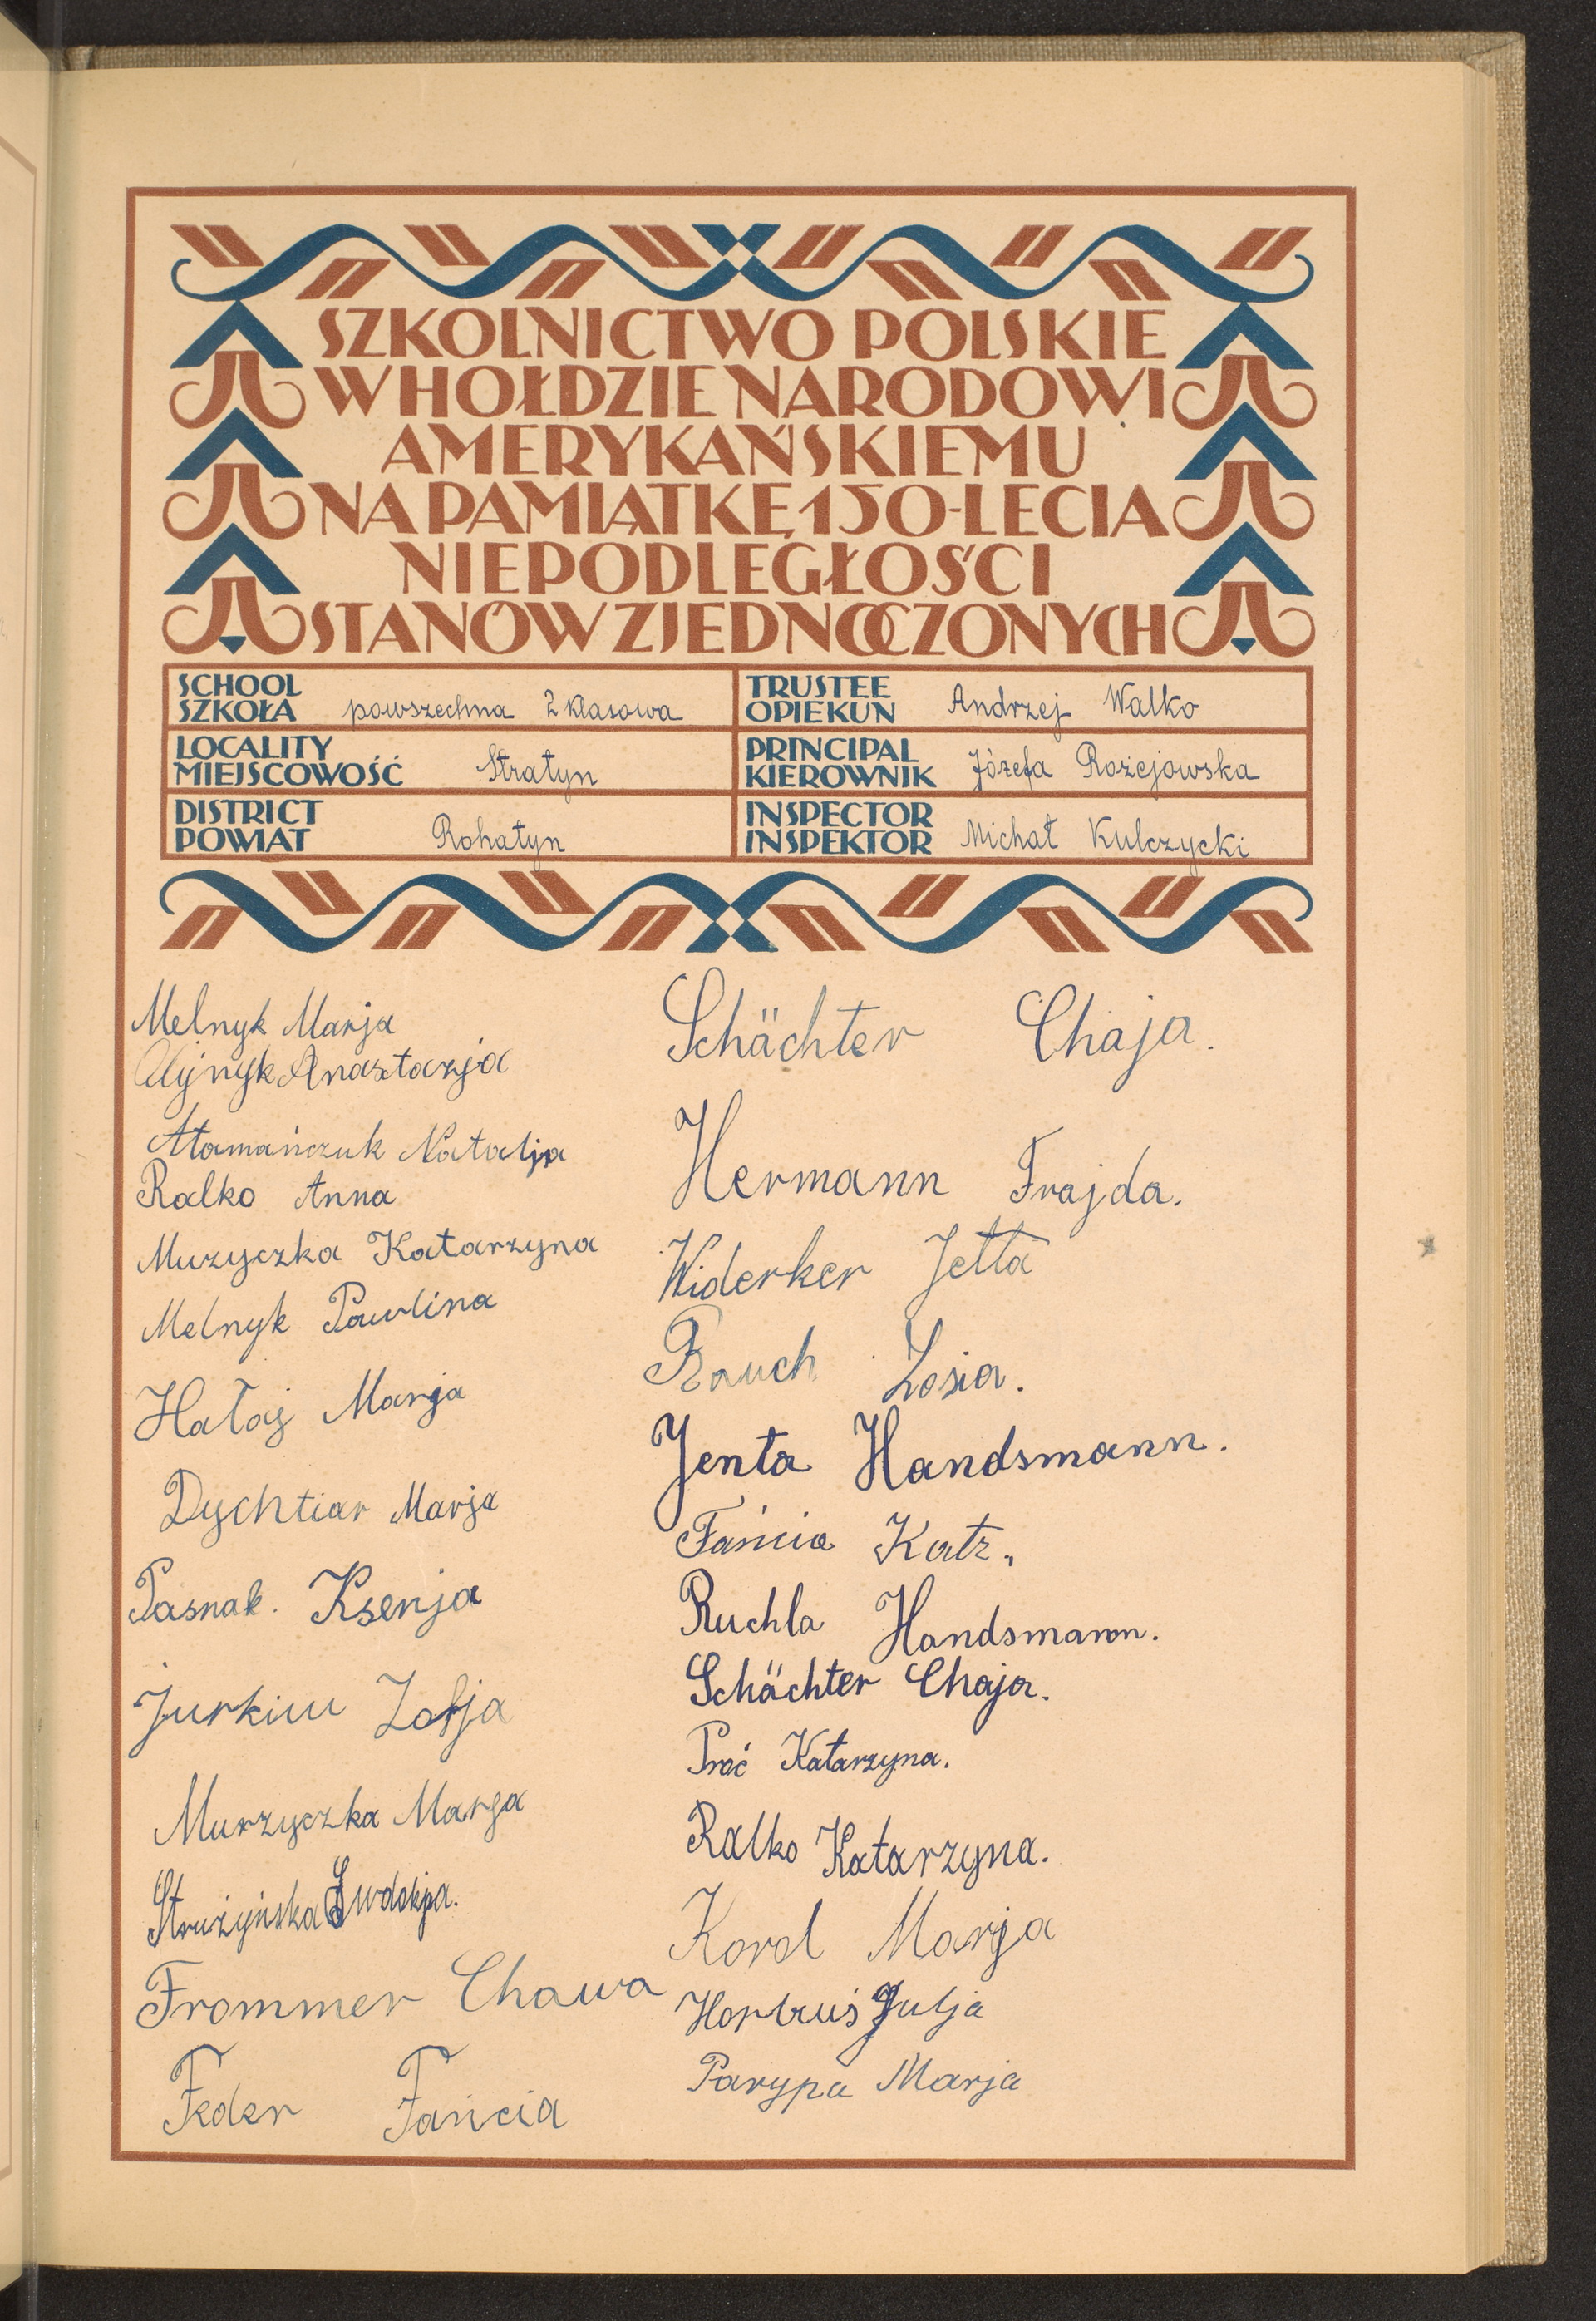 SZKOLNICTWO POLSKIE
W HOŁDZIE NARODOWI
AMERYKAŃSKIEMU
NA PAMIĄTKĘ 150-LECIA
NIEPODLEGŁOŚCI
STANÓW ZJEDNOCZONYCH
SCHOOL
SZKOŁA powszechna 2 klasowa
TRUSTEE
OPIEKUN Andrzej Walko
LOCALITY
MIEJSCOWOŚĆ Stratyn
PRINCIPAL
KIEROWNIK Józefa Rożejowska
DISTRICT
POWIAT Rohatyn
INSPECTOR
INSPEKTOR Michał Kulczycki
Melnyk Marja
Olijnyk Anastazja
Atamańczuk Natalja
Ralko Anna
Muzyczka Katarzyna
Melnyk Pawlina
Hałaj Marja
Dychtiar Marja
Pasnak. Ksenja
Jurkiw Zofja
Murzyczka Marja
Strużyńska Ewdokja.
Frommer Chawa
Feder Fańcia
Schächter Chaja.
Hermann Frajda.
Widerker Jetta
Rauch Zosia.
Jenta Handsmann.
Fańcia Katz.
Ruchla Handsmann.
Schächter Chaja.
Proć Katarzyna.
Ralko Katarzyna.
Korol Marja
Horbuś Julja
Parypa Marja